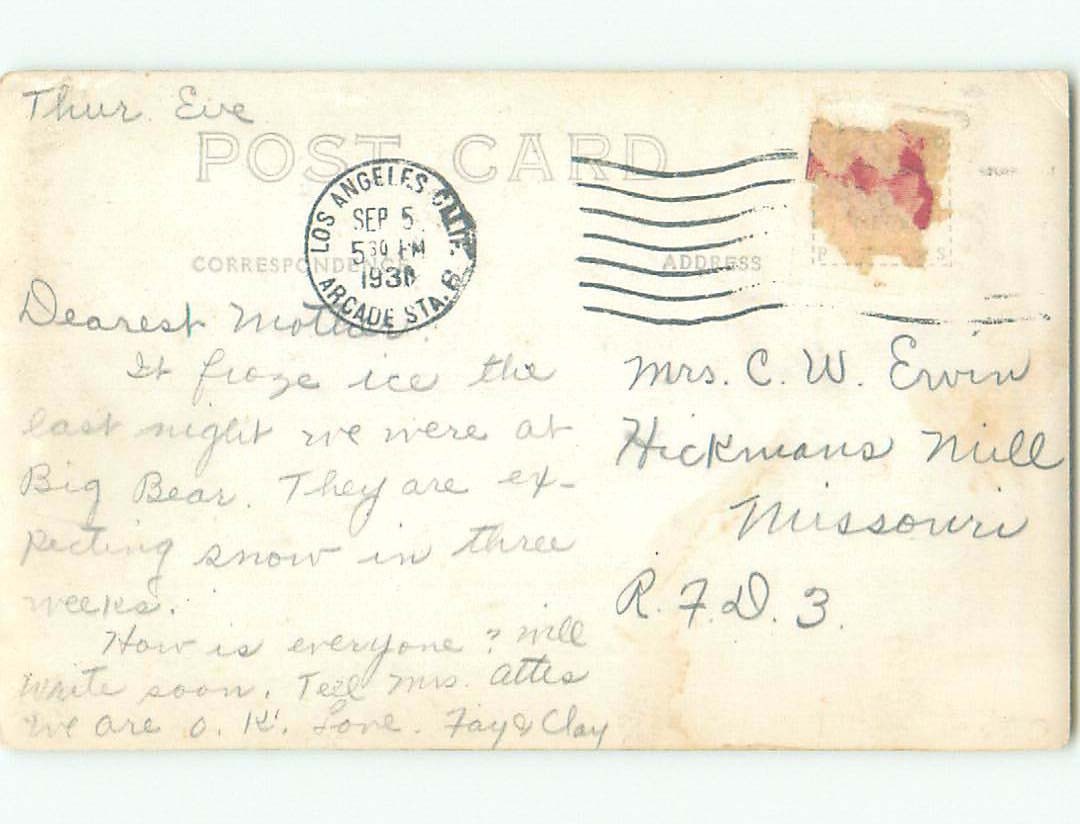 Thur. Eve
POST CARD
LOS ANGELES CALIF.
SEP 5
5 30 PM
1930
ARCADE STA. 6
CORRESPONDENCE
ADDRESS
P S
Dearest Mother.
It froze ice the
last night we were at
Big Bear. They are ex-
pecting snow in three
weeks.
How is everyone? Will
write soon. Tell Mrs.
We are O.K. Love. Fay & Clay
Mrs. C. W. Ervin
Hickmans Mill
Missouri
R.F.D. 3.